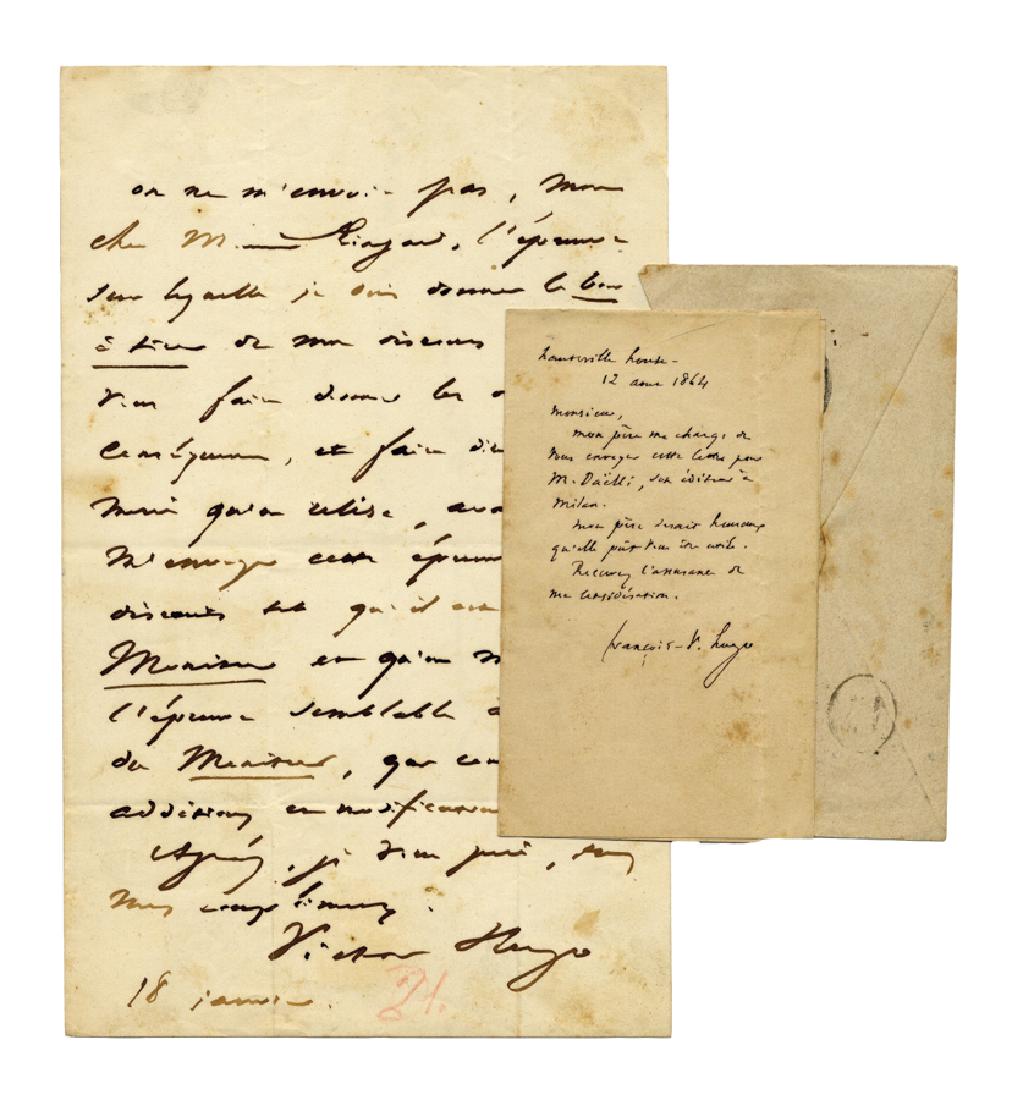 on ne m'envoie pas, mon
cher Monsieur l'épreuve
sur laquelle je dois donner le bon
à tirer de mon discours
faire donner les
conséquence, et faire
m'envoyer cette épreuve
discours tel qu'il est
Moniteur et qu'on
l'épreuve semblable
du Moniteur, que
additions ou modifications
Agréez, je vous prie, tous
mes compliments.
Victor Hugo
18 janvier.
hauteville house –
12 1864
Monsieur,
mon père me charge de
vous envoyer cette lettre pour
M. Daëlli, son éditeur à
Milan.
mon père serait heureux
qu'elle pût vous être utile.
Recevez l'assurance de
ma considération.
françois-V. hugo